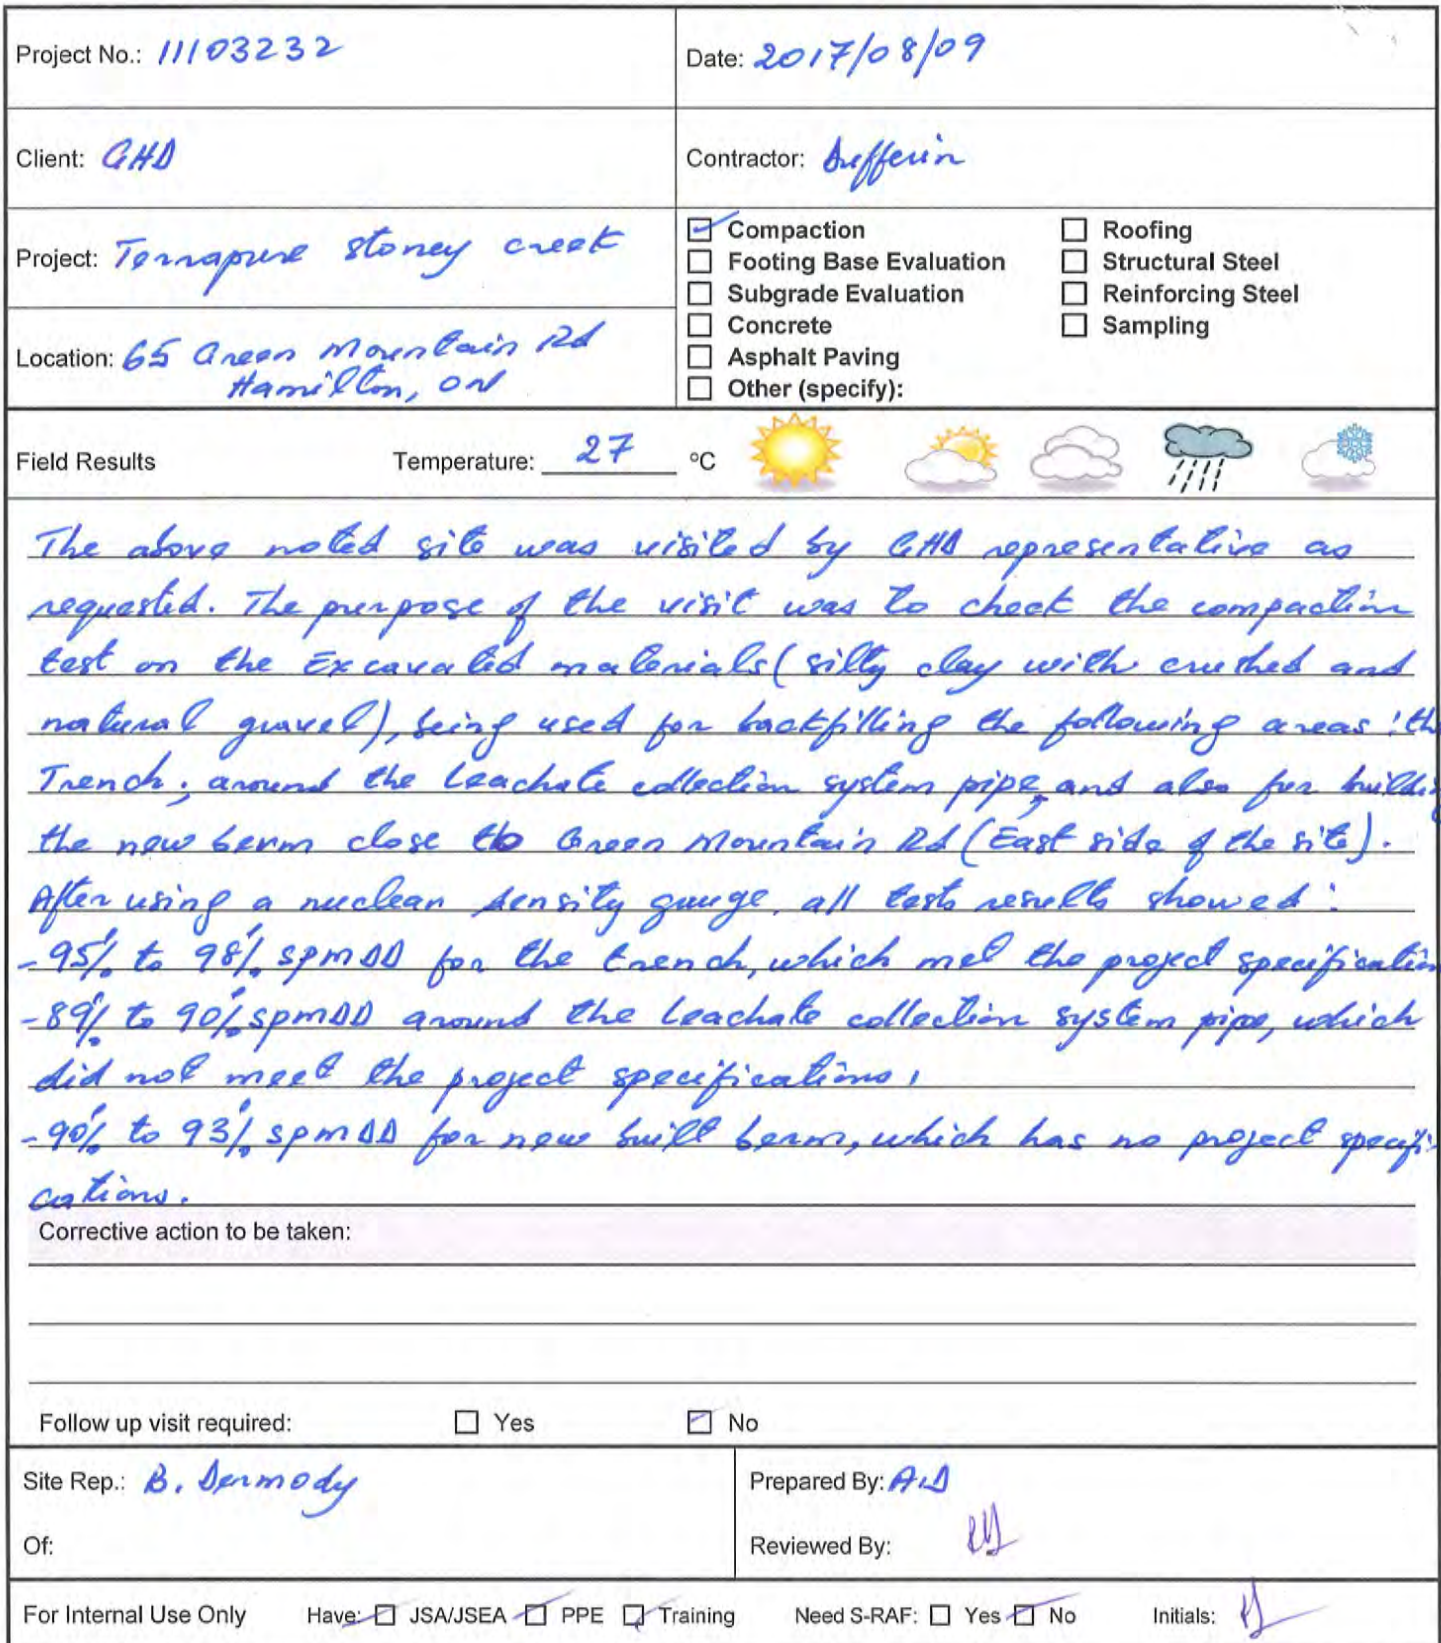 Project No.: 11103232
Date: 2017/08/09
Client: GHD
Contractor: Dufferin
Project: Terrapure stoney creek
Location: 65 Green Mountain Rd
Hamilton, ON
Compaction
Footing Base Evaluation
Subgrade Evaluation
Concrete
Asphalt Paving
Other (specify):
Roofing
Structural Steel
Reinforcing Steel
Sampling
Field Results Temperature: 27 °C
The above noted site was visited by GHD representative as
requested. The purpose of the visit was to check the compaction
test on the Excavated materials (silty clay with crushed and
natural gravel), being used for backfilling the following areas : the
Trench, around the Leachate collection system pipe, and also for buildi
the new berm close to Green Mountain Rd (East side of the site).
After using a nuclear density gauge, all tests results showed :
- 95% to 98% SPMDD for the trench, which met the project specification
- 89% to 90% SPMDD around the Leachate collection system pipe, which
did not meet the project specifications,
- 90% to 93% SPMDD for new built berm, which has no project specifi-
cations.
Corrective action to be taken:
Follow up visit required: Yes No
Site Rep.: B. Dermody
Of:
Prepared By: A.D
Reviewed By:
For Internal Use Only Have: JSA/JSEA PPE Training Need S-RAF: Yes No Initials: